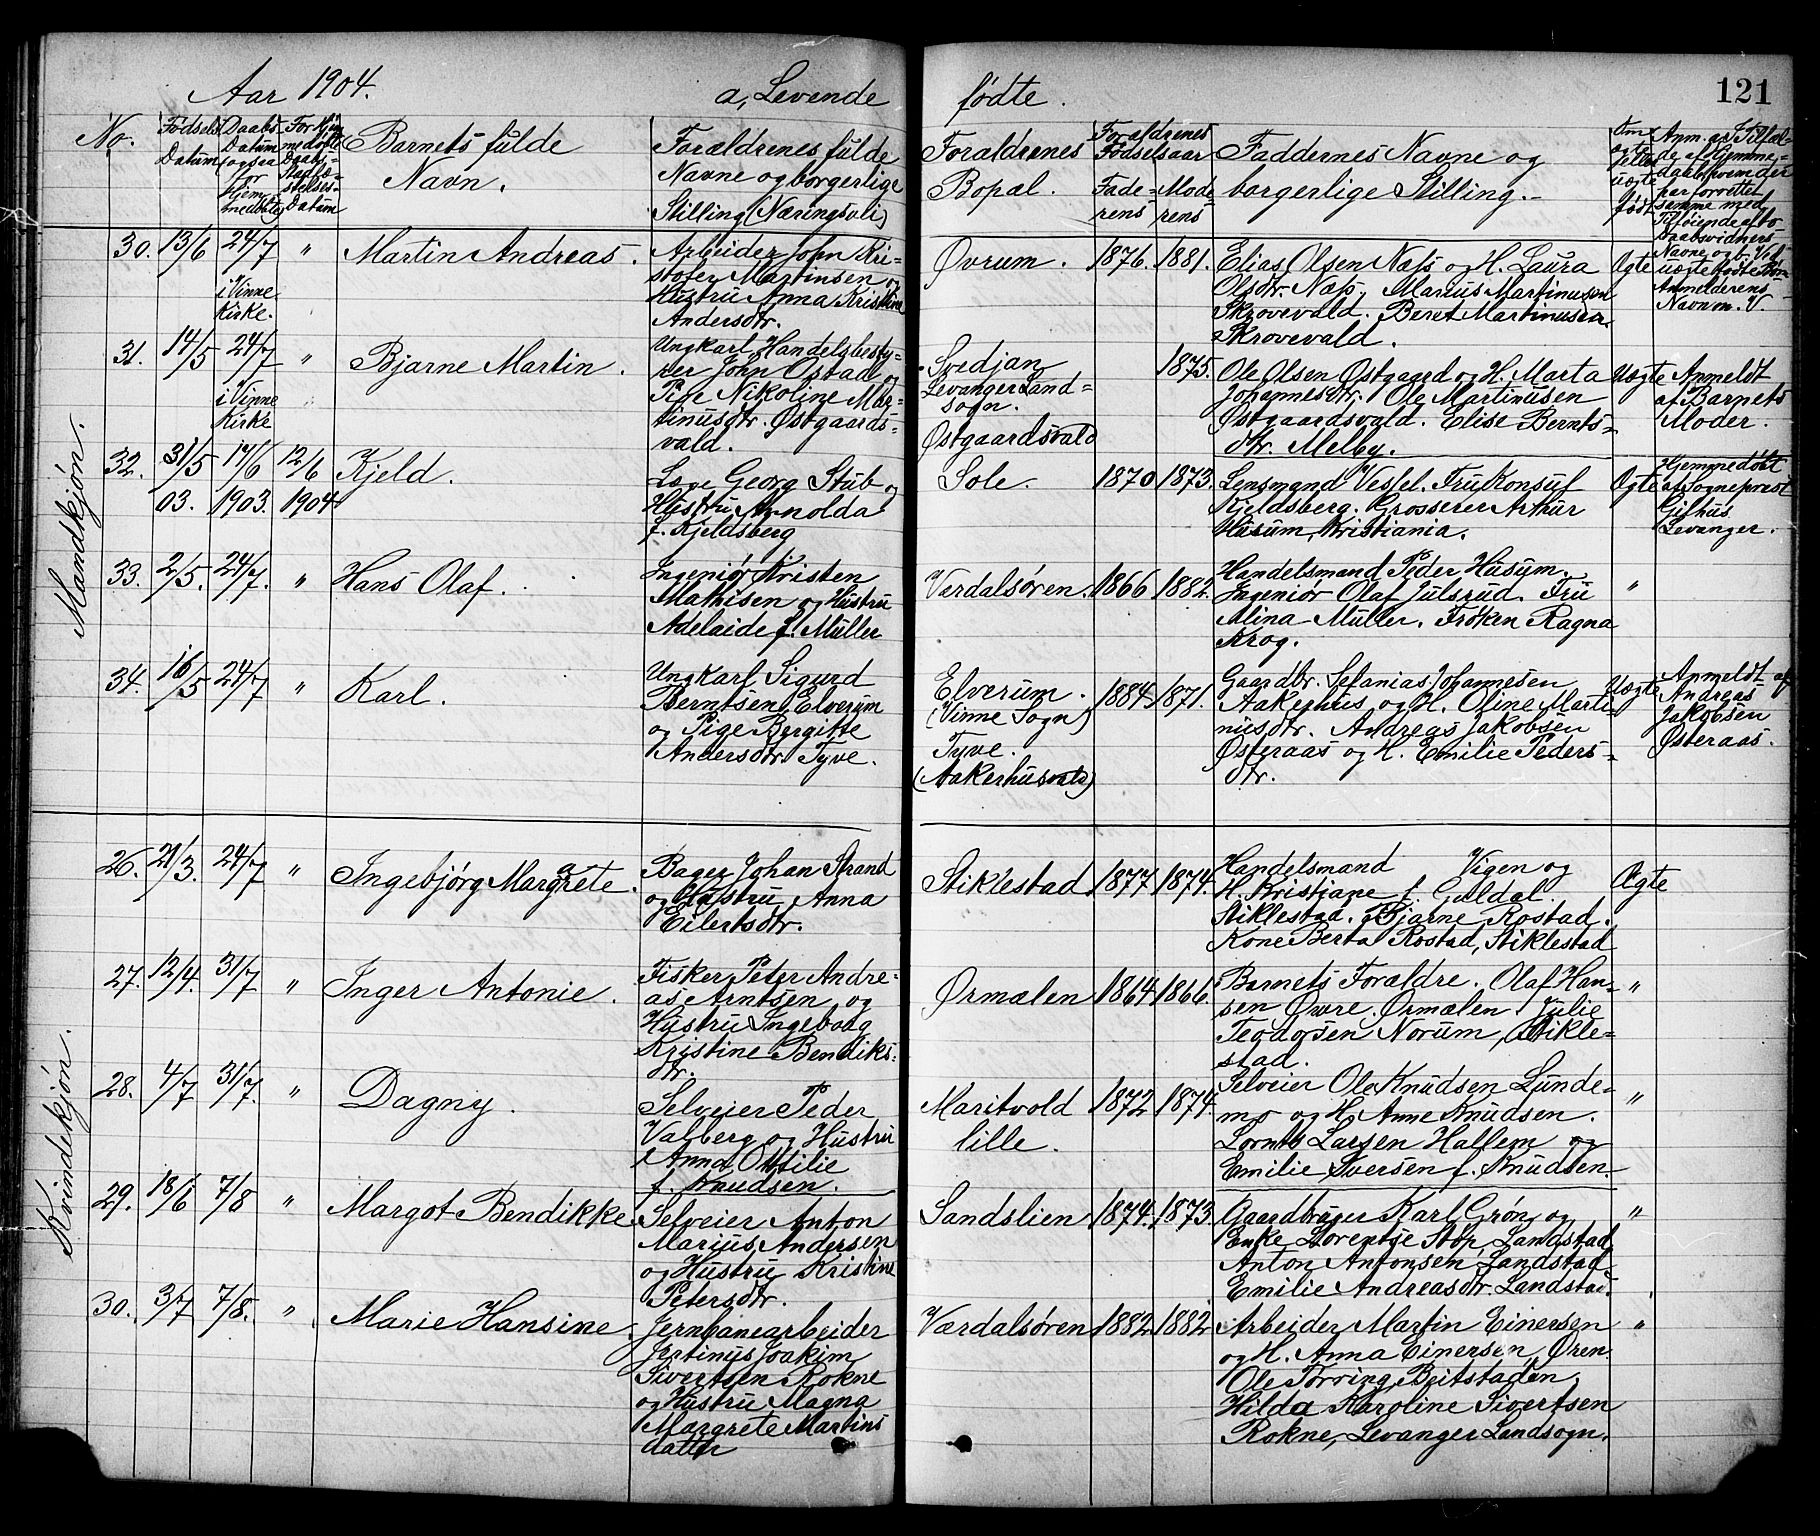 Aar 1904. a, Levende fødte. 121
No. Fødsels Datum Daabs Datum (ogsaa for Hjem medøbte For Hjem medøbte Daabs- Stadfæ- stelses- Datum Barnets fulde Navn. Forældrenes fulde Navne og borgerlige Stilling (Næringsvei) Forældrenes Bopæl. Forældrenes Fødselsaar Fade- rens Mode- rens Faddernes Navne og borgerlige Stilling. Om ægte eller uægte født
Mandkjøn.
30. 13/6 24/7 " Martin Andreas. Arbeider John Kri- Øvrum. 1876. 1881. Elias Olsen Næss og H. Laura Ægte
i Vinne Kirke. stofer Martinsen og Olsdtr. Næss, Marius Martinusen
Hustru Anna Kristine Skrovevald. Beret Martinusen
Andersdtr. Skrovevald.
31. 14/5 24/7 " Bjarne Martin. Ungkarl Handelsbesty- Svedjan 1875. Ole Olsen Østgaard og H. Marta Uægte Anmeldt
i Vinne rer John Østad og Levanger Land= Johannesdtr. Ole Martinusen af Barnets
Kirke Pige Nikoline Mar- sogn. Østgaardsvald. Elise Bernts- Moder.
tinusdtr. Østgaards- Østgaardsvald dtr. Melby.
vald.
32. 31/5 14/6 12/6 Kjeld. Læge Georg Stub og Sole. 1870 1873. Lensmand Vessel. Fru Konsul Ægte Hjemmedøbt
03. 1903. 1904 Hustru Arnolda Kjeldsberg. Grosserer Arthur af Sogneprest
f. Kjeldsberg Husum, Kristiania. Gilhus
Levanger.
33. 2/5. 24/7. " Hans Olaf. Ingeniør Kristen Værdalsøren. 1866 1882. Handelsmand Peder Husum. "
Mathisen og Hustru Ingeniør Olaf Julsrud. Fru
Adelaide f. Müller Alina Müller. Frøken Ragna
Krog.
34. 16/5 24/7 " Karl. Ungkarl Sigurd Elverum. 1884 1871. Gaardbr. Sefanias Johannesen Uægte Anmeldt af
Berntsen Elverum (Vinne Sogn) Aakerhus og H. Oline Marti- Andreas
og Pige Bergitte Tyve. nusdtr. Andreas Jakobsen Jakobsen
Andersdtr. Tyve. (Aakerhusvald) Østeraas og H. Emilie Peders- Østeraas.
dtr.
Kvindekjøn.
26. 21/3. 24/7 " Ingebjørg Margrete. Bager Johan Strand Stiklestad 1877 1874. Handelsmand Vigen og Ægte
og Hustru Anna H. Kristiane f. Guldal.
Eilertsdtr. Stiklestad. Bjarne Rostad.
Kone Berta Rostad, Stiklestad
27. 12/4. 31/7 " Inger Antonie. Fisker Peter Andre- Ørmælen 1864 1866. Barnets Forældre. Olaf Han- "
as Arntsen og sen Øvre Ørmælen. Julie
Hustru Ingeborg Teodorsen Norum, Stikle-
Kristine Bendiks- stad.
dtr.
28. 4/7 31/7. " Dagny. Selveier Peder Maritvold 1872 1874. Selveier Ole Knudsen Lunde- "
Valberg og Hustru lille. mo og H. Anne Knudsen.
Anna Ottilie Lornts Larsen Hallem og
f. Knudsen. Emilie Iversen f. Knudsen.
29. 18/6 7/8 " Margot Bendikke. Selveier Anton Sandslien 1874. 1873 Gaardbruger Karl Grøn og "
Marius Andersen Enke Lorentse Stor, Landstad
og Hustru Kristine Anton Antonsen Landstad.
Petersdtr. Emilie Andreasdtr. Landstad.
30. 3/7 7/8. " Marie Hansine. Jernbanearbeider Værdalsøren 1882 1882. Arbeider Martin Einersen "
Jertinus Joakim og H. Anna Einersen, Øren.
Sivertsen Rokne Ole Forring, Beitstaden.
og Hustru Magna Hilda Karoline Sivertsen
Margrete Martins Rokne, Levanger Landsogn.
datter